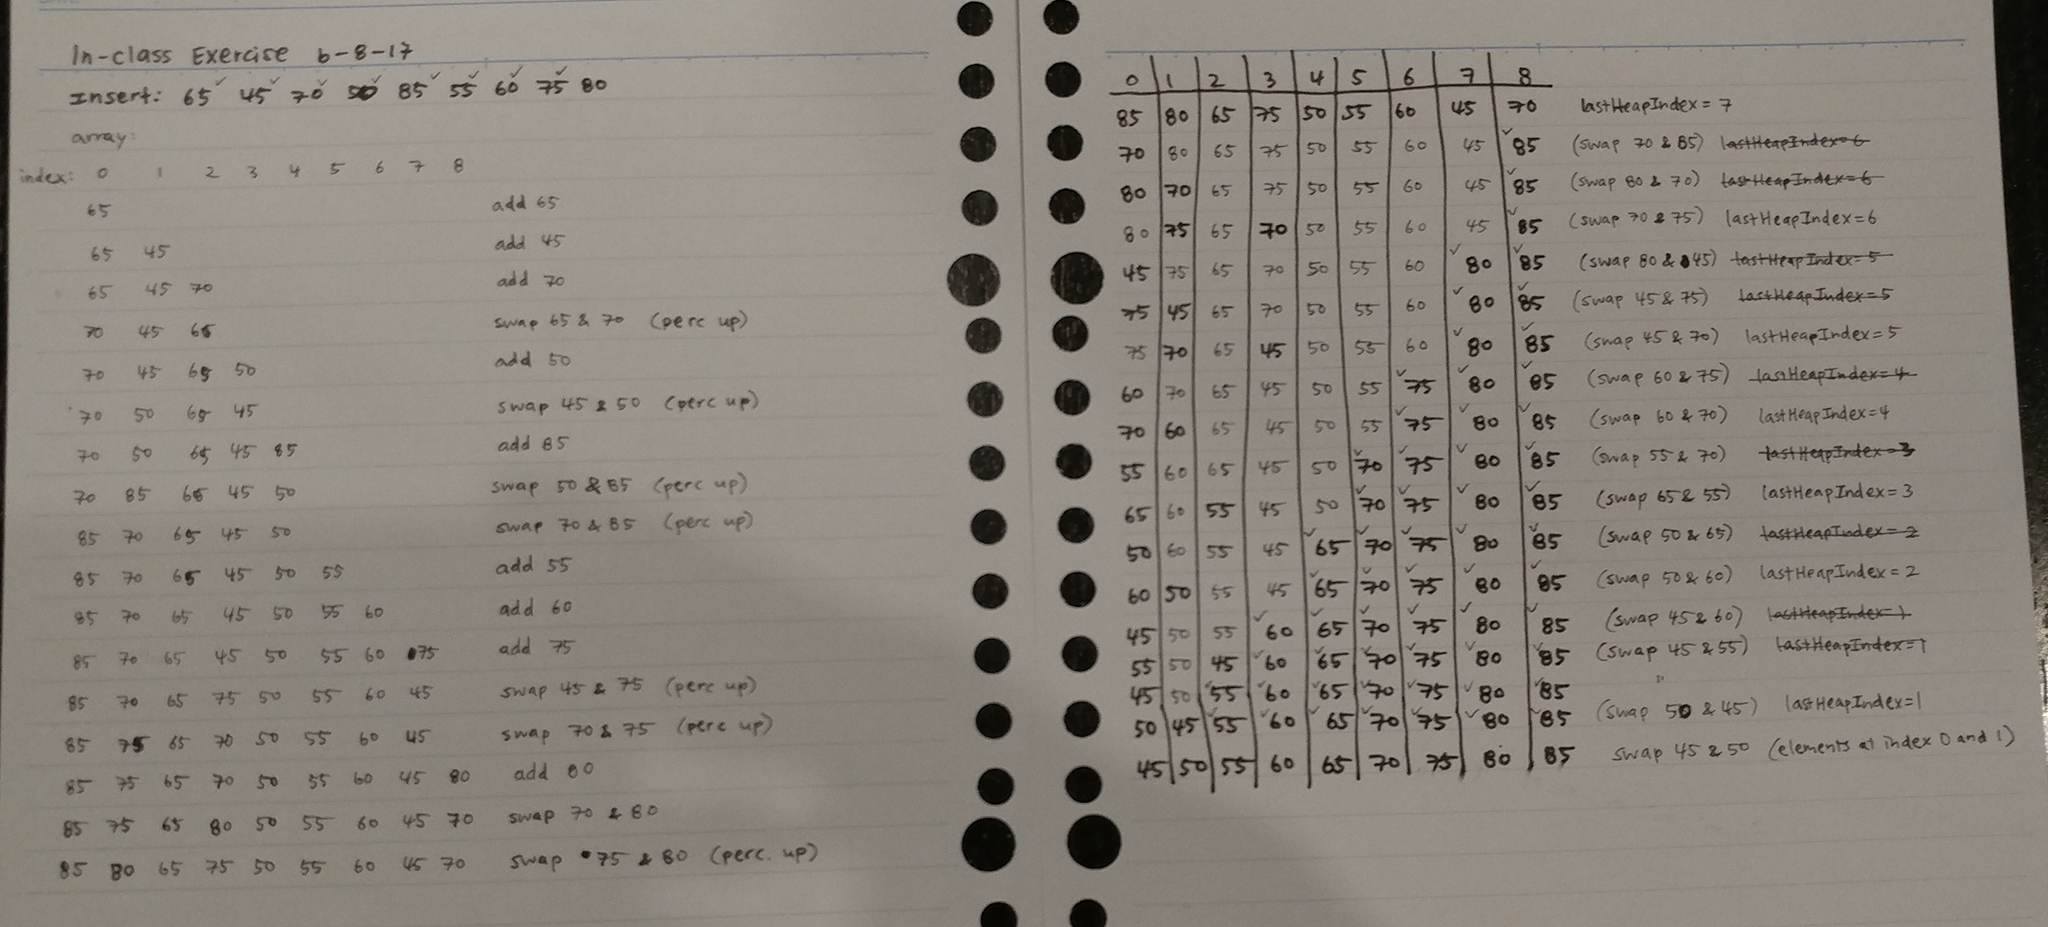 In-class Exercise 6-8-17
Insert: 65 45 70 50 85 55 60 75 80
array:
index: 0 1 2 3 4 5 6 7 8
65 add 65
65 45 add 45
65 45 70 add 70
70 45 65 swap 65 & 70 (perc up)
70 45 65 50 add 50
70 50 65 45 swap 45 & 50 (perc up)
70 50 65 45 85 add 85
70 85 65 45 50 swap 50 & 85 (perc up)
85 70 65 45 50 swap 70 & 85 (perc up)
85 70 65 45 50 55 add 55
85 70 65 45 50 55 60 add 60
85 70 65 45 50 55 60 75 add 75
85 70 65 75 50 55 60 45 swap 45 & 75 (perc up)
85 75 65 70 50 55 60 45 swap 70 & 75 (perc up)
85 75 65 70 50 55 60 45 80 add 80
85 75 65 80 50 55 60 45 70 swap 70 & 80
85 80 65 75 50 55 60 45 70 swap 75 & 80 (perc. up)
0 1 2 3 4 5 6 7 8
85 80 65 75 50 55 60 45 70 lastHeapIndex = 7
70 80 65 75 50 55 60 45 85 (swap 70 & 85) lastHeapIndex=6
80 70 65 75 50 55 60 45 85 (swap 80 & 70) lastHeapIndex=6
80 75 65 70 50 55 60 45 85 (swap 70 & 75) lastHeapIndex=6
45 75 65 70 50 55 60 80 85 (swap 80 & 45) lastHeapIndex=5
75 45 65 70 50 55 60 80 85 (swap 45 & 75) lastHeapIndex=5
75 70 65 45 50 55 60 80 85 (swap 45 & 70) lastHeapIndex=5
60 70 65 45 50 55 75 80 85 (swap 60 & 75) lastHeapIndex=4
70 60 65 45 50 55 75 80 85 (swap 60 & 70) lastHeapIndex=4
55 60 65 45 50 70 75 80 85 (swap 55 & 70) lastHeapIndex=3
65 60 55 45 50 70 75 80 85 (swap 65 & 55) lastHeapIndex=3
50 60 55 45 65 70 75 80 85 (swap 50 & 65) lastHeapIndex=2
60 50 55 45 65 70 75 80 85 (swap 50 & 60) lastHeapIndex=2
45 50 55 60 65 70 75 80 85 (swap 45 & 60) lastHeapIndex=1
55 50 45 60 65 70 75 80 85 (swap 45 & 55) lastHeapIndex=1
45 50 55 60 65 70 75 80 85 "
50 45 55 60 65 70 75 80 85 (swap 50 & 45) lastHeapIndex=1
45 50 55 60 65 70 75 80 85 swap 45 & 50 (elements at index 0 and 1)